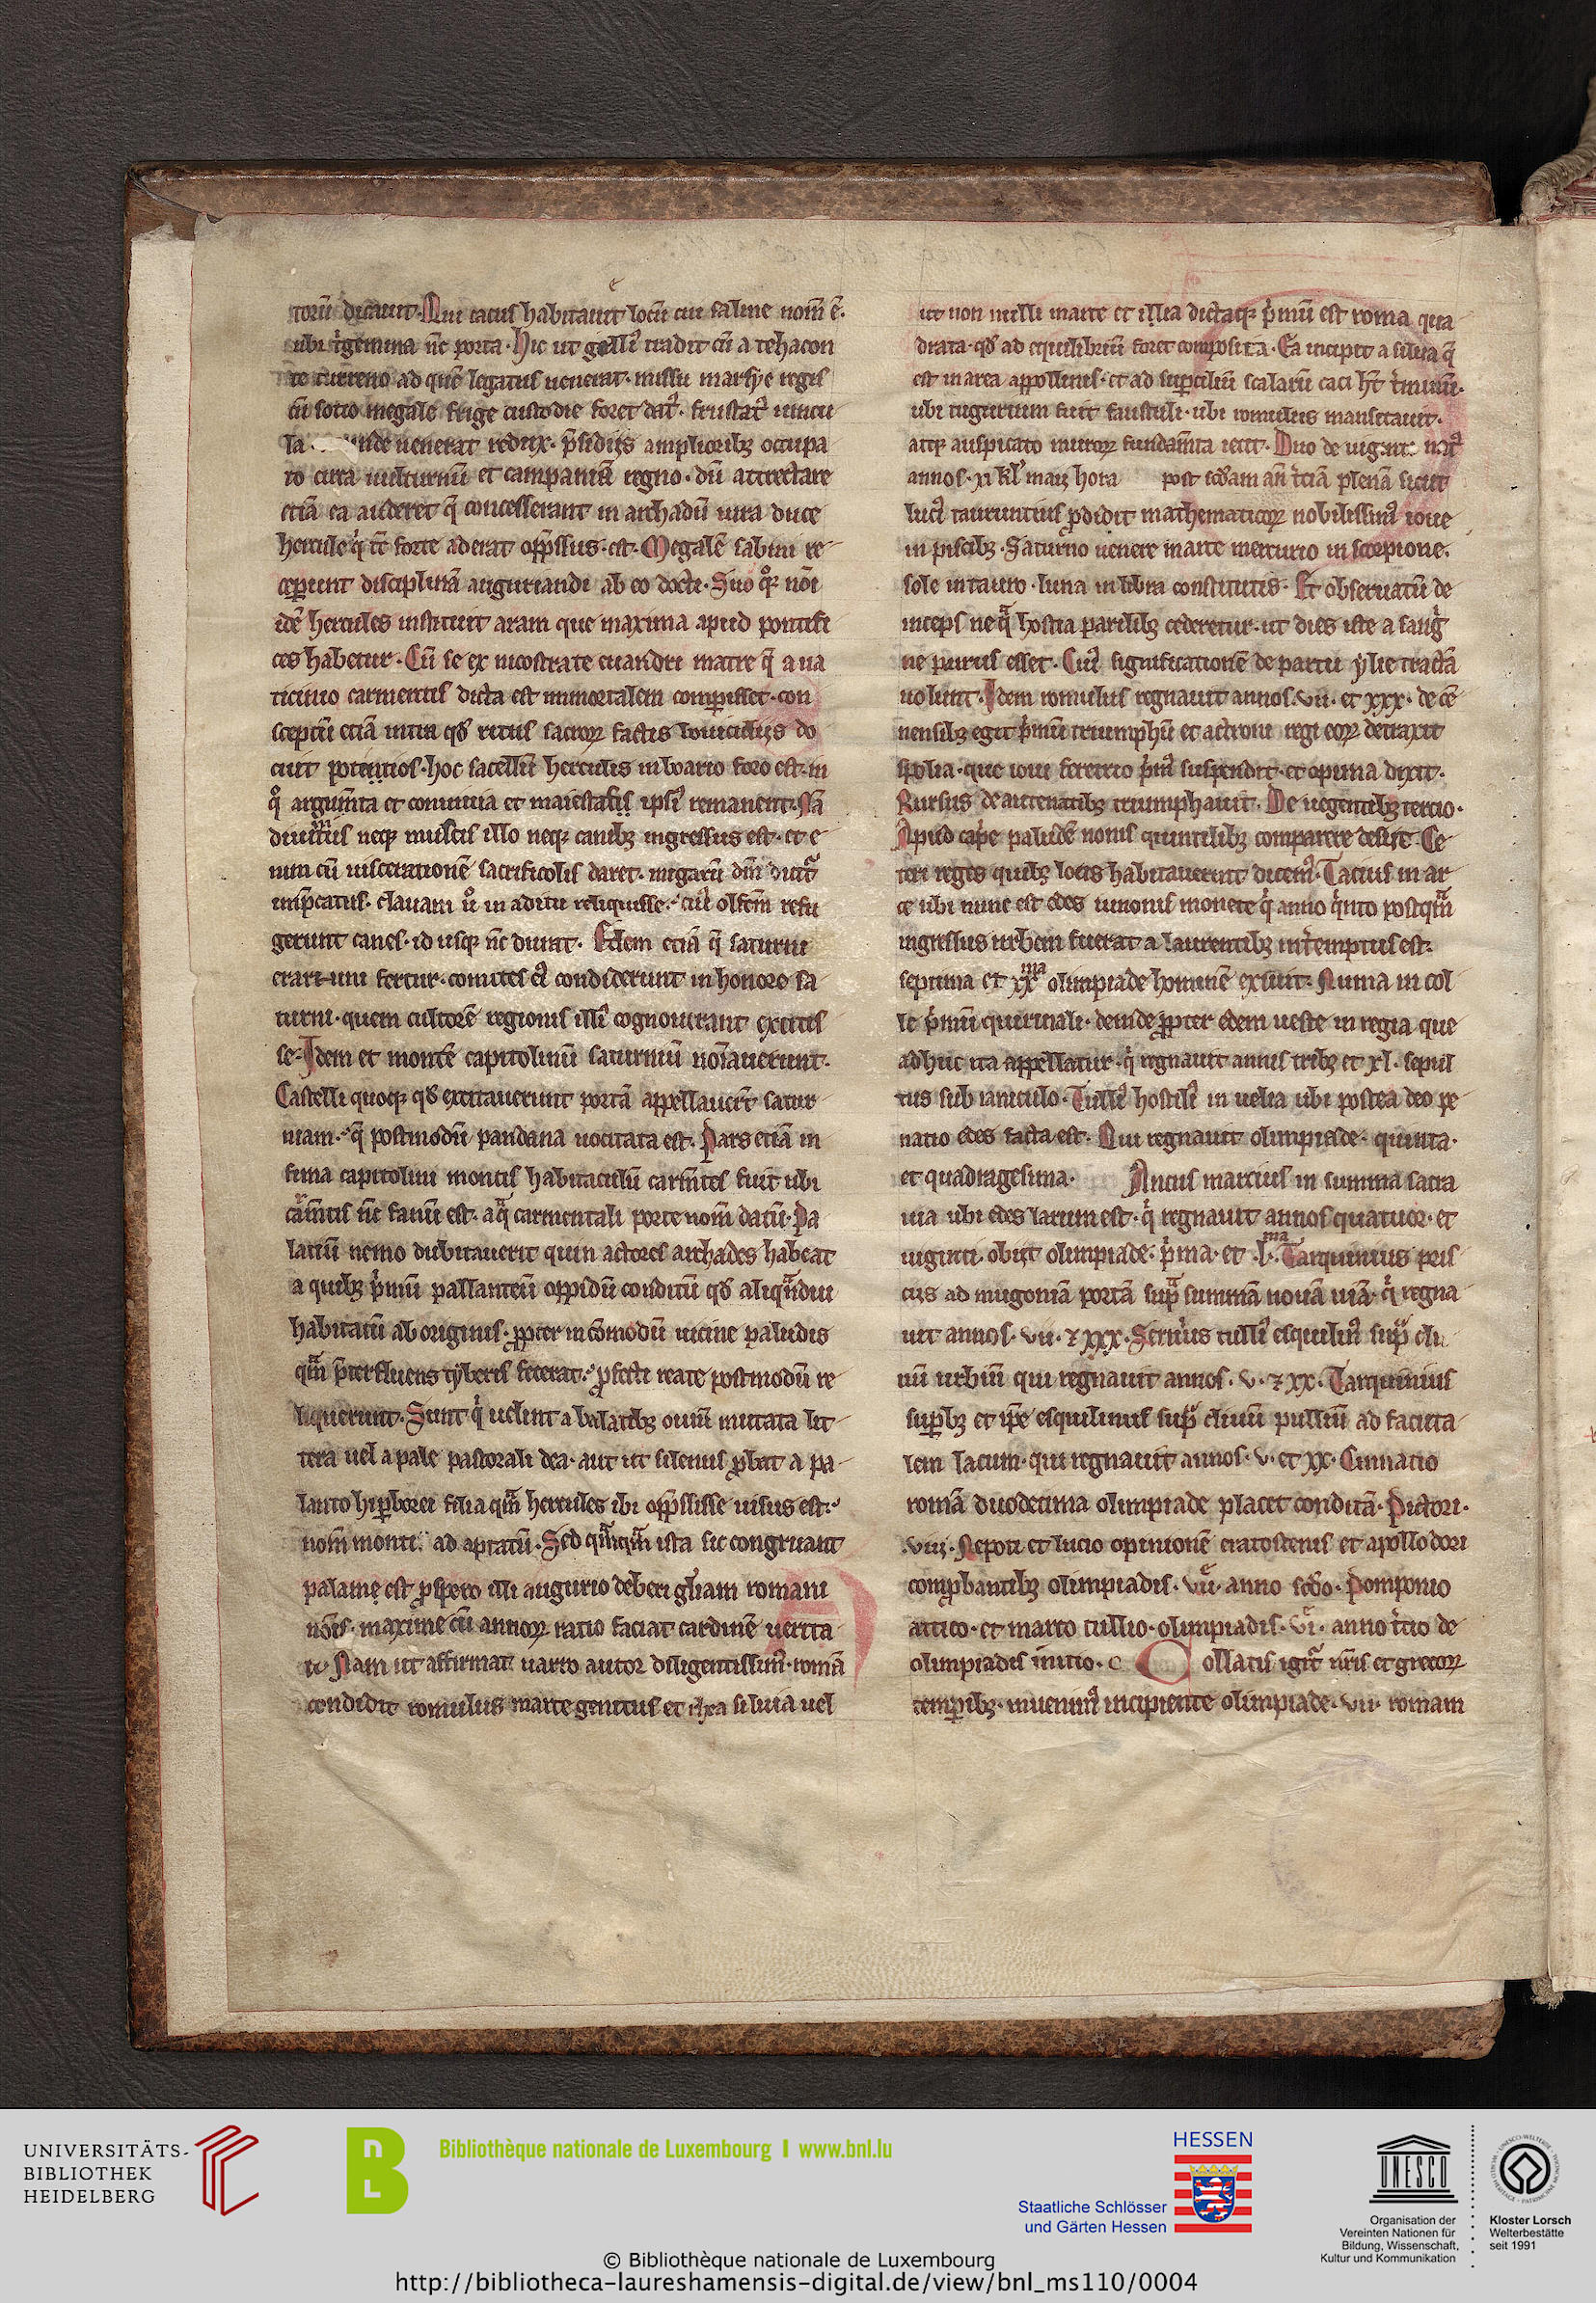 torū dicauit. Qui cacus habitauit locū cui saline nom̄ ē.
ubi t'gemina nc̄ porta. Hic ut gelli' tradit cū a tehacon
te tirreno ad quē legatus uenerat. missu marsye regis
cū socio megale frige custodie foret dat'. frustat' uincu
la. unde uenerat redux. p̄sidiis amplioribꝫ occupa
to circa uulturnū et campaniā regno. dū attrectare
etiā ea auderet q̄ concesserant in archadū iura duce
hercule q' tc̄ forte aderat opp̄ssus. est. Megalē sabini re
ceperunt disciplinā auguriandi ab eo docti. Suo qꝫ nōi
idē hercules instituit aram que maxima apud pontifi
ces habetur. Cū se ex nicostrate euandri matre q̄ a ua
ticinio carmentis dicta est immortalem comperisset. con
septū etiā intra qd' ritus sacroꝝ factis bouicidiis do
cuit potitios. hoc sacellū herculis in boario foro est. in
q° argum̄ta et conuiuia et maiestatis ipsi' remanent. Nā
diuinitus neqꝫ muscis illo neqꝫ canibꝫ ingressus est. et e
nim cū uiscerationē sacrificolis daret. migarū dm̄ dicit'
imp̄catus. clauam u° in aditu reliquisse. cui' olfem̄ refu
gerunt canes. id usqꝫ nc̄ durat. Edem etiā q̄ saturni
erarium fertur. comites ei' condiderunt in honore sa
turni. quem cultorē regionis illi' cognouerant extitis
se. Idem et montē capitolinū saturniū noīauerunt.
Castelli quoqꝫ qd' excitauerunt portā appellauert̄ satur
niam. q̄ postmodū pandana uocitata est. Pars etiā in
fima capitolini montis habitaculū carm̄tes fuit ubi
carm̄tis nc̄ fanū est. a qᵃ carmentali porte nom̄ datū. Pa
latiū nemo dubitauerit quin actores archades habeat
a quibꝫ p'mū pallanteū oppidū conditū qd' aliqᵃndiu
habitatū ab originis. ꝓpter incōmodū uicine paludis
qᵃm p̄terfluens tyberis fecerat. ꝓfecti reate postmodū re
liquerunt. Sunt q' uelint a balatibꝫ ouiū mutata lit
tera uel a pale pastorali dea. aut ut silenus ꝓbat a pa
lanto hiperborei filia qᵃm hercules ibi opp̄ssisse uisus est.
nom̄ monti ad aptatū. Sed qᵃmqᵃm ista sic congruant
palam est ꝓspero illi augurio deberi gl'iam romani
nōis. maxime cū annoꝝ ratio faciat cardinē uerita
ti. Nam ut affirmat uarro autor diligentissim'. romā
condidit romulus marte genitus et rhea siluia uel
ut non nulli marte et illia dictaqꝫ p'mū est roma qua
drata. qd' ad equilibriū foret composita. Ea incipit a silua q̄
est in area appollinis. et ad superciliū scalarū caci ht̄ t'minū.
ubi tugurium fuit faustuli. ubi romulus mansitauit.
atqꝫ auspicato muroꝝ fundam̄ta iecit. Duo de uiginti nat'
annos. xi kl' maij hora post sc̄dam an̄ t'ciā plenā sicut
luci' tarruntius ꝓdidit mathematicoꝝ nobilissim' ioue
in piscibꝫ. Saturno uenere marte mercurio in scorpione.
sole in tauro. luna in libra constitutis. Et obseruatū de
inceps ne qᵃ hostia parilibꝫ cederetur. ut dies iste a sang'
ne purus esset. Cui' significationē de partu ylie tractā
uolunt. Idem romulus regnauit annos. vii. et xxx. de cē
nensibꝫ egit p'mū triumphū et acroni regi eoꝝ detraxit
spolia. que ioui feretrio p'm' suspendit. et opima dixit.
Rursus de antenatibꝫ triumphauit. De uegentibꝫ tercio.
Apud cap'e paludē nonis quintilibꝫ comparere desiit. Ce
teri reges quibꝫ locis habitauerunt dicem'. Tacius in ar
ce ubi nunc est edes iunonis monete q' anno q'nto postqᵃm
ingressus urbem fuerat a laurentibꝫ int'emptus est.
septima et xxma olimpiade hominē exiuit. Numa in col
le p'mū quirinali. deinde ꝓpter edem ueste in regia que
adhuc ita appellatur. q' regnauit annis tribꝫ et xl. sepul
tus sub ianiculo. Tulli' hostili' in uelia ubi postea deo pe
natio edes facta est. Qui regnauit olimpiade. quinta.
et quadragesima. Ancus marcius in summa sacra
uia ubi edes larum est. q' regnauit annos quatuor. et
uiginti. obiit olimpiade. p'ma. et .l.ma Tarquinius pris
cus ad mugoniā portā supᵃ summā nouā uiā. q' regna
uit annos. vii. ⁊ xxx. Seruius tulli' esquilin' supᵃ cli
uū urbiū qui regnauit annos. v. ⁊ xx. Tarquinius
superbꝫ et ip̄e esquilinus supᵃ cliuū pulliū ad facuta
lem lacum. qui regnauit annos. v. et xx. Cinnatio
romā duodecima olimpiade placet conditā. Pictori.
.viij. Nepoti et lucio opinionē eratostenis et apollodori
comꝓbantibꝫ olimpiadis. vii. anno sc̄do. Pomponio
attico. et marco tullio. olimpiadis. vi. anno t'cio de
olimpiadis initio. c Collatis igit' nr̄is et grecoꝝ
temporibꝫ. inuenim' incipiente olimpiade. vii. romam
UNIVERSITÄTS-
BIBLIOTHEK
HEIDELBERG
BnL
Bibliothèque nationale de Luxembourg I www.bnl.lu
HESSEN
Staatliche Schlösser
und Gärten Hessen
UNESCO
Organisation der
Vereinten Nationen für
Bildung, Wissenschaft,
Kultur und Kommunikation
Kloster Lorsch
Welterbestätte
seit 1991
© Bibliothèque nationale de Luxembourg
http://bibliotheca-laureshamensis-digital.de/view/bnl_ms110/0004